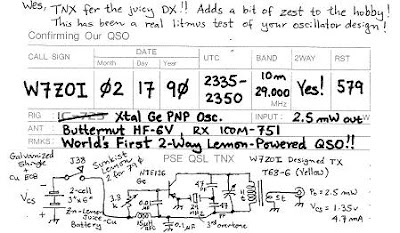 Wes, TNX fer the juicy DX!! Adds a bit of zest to the hobby!
This has been a real litmus test of your oscillator design!
Confirming Our QSO
CALL SIGN DATE UTC BAND 2WAY RST
Month Day Year
W7ZOI Ø2 17 9Ø 2335-2350 10m 29.000 MHz Yes! 579
RIG : IC-725 Xtal Ge PNP Osc. INPUT: 2.5 mW out
ANT : Butternut HF-6V , RX ICOM-751
RMKS: World's First 2-Way Lemon-Powered QSO!!
Galvanized Shingle + Cu PCB
J38
Sunkist Lemon 2 for 79¢
PSE QSL TNX
W7ZOI Designed TX
T68-6 (Yellow)
2-cell 3"x6"
Zn-Lemon Juice-Cu Battery
VCS
2N1526 Ge
Po = 2.5 mW
VCS = 1.35v
4.7 mA
3rd overtone